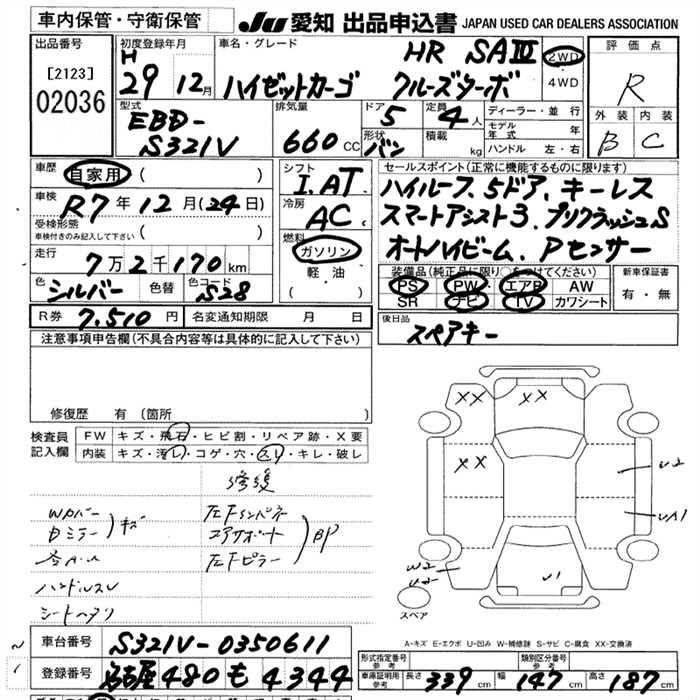 車内保管・守衛保管
JU 愛知 出品申込書 JAPAN USED CAR DEALERS ASSOCIATION
出品番号
[2123]
02036
初度登録年月
H
29 12月
車名・グレード
HR SAⅢ
ハイゼットカーゴ クルーズターボ
2WD
・
4WD
評価点
R
外装 内装
B C
型式
EBD-
S321V
排気量
660 CC
ドア 5
形状 バン
定員 4人
積載 kg
ディーラー・並行
モデル年式 年
ハンドル 左・右
車歴 自家用 ( )
車検 R7年12月(24日)
受検形態
車検付きのみ記入して下さい ( )
走行
7万2千170km
色 シルバー 色替 色コード S28
R券 7.510円 名変通知期限 月 日
シフト
I.AT
冷房
AC
燃料
ガソリン
軽・油
( )
セールスポイント(正常に機能するものに限ります)
ハイルーフ.5ドア.キーレス
スマートアシスト3.プリクラッシュS
オートハイビーム.Pセンサー
装備品(純正品に限り○をつけてください)
PS PW エアB AW
SR ナビ TV カワシート
新車保証書
有・無
後日品
スペアキー
注意事項申告欄(不具合内容等は具体的に記入して下さい)
修復歴 有(箇所 )
検査員記入欄
FW キズ・飛石・ヒビ割・リペア跡・X要
内装 キズ・汚レ・コゲ・穴・スリ・キレ・破レ
修復
Wカバー
Dミラー
キズ
各A-U
ハンドルスレ
シートヘタリ
左Fインパネ
エアサポート
左Fピラー
BP
XX
XX
XX
U2
UA1
W2
U2
U1
スペア
A-キズ E-エクボ U-凹み W-補修跡 S-サビ C-腐食 XX-交換済
車台番号 S321V-0350611
登録番号 名古屋 480 も 4344
形式指定番号 参考
類別区分番号 参考
車庫証明用 参考 長さ 339cm 幅 147cm 高さ 187cm